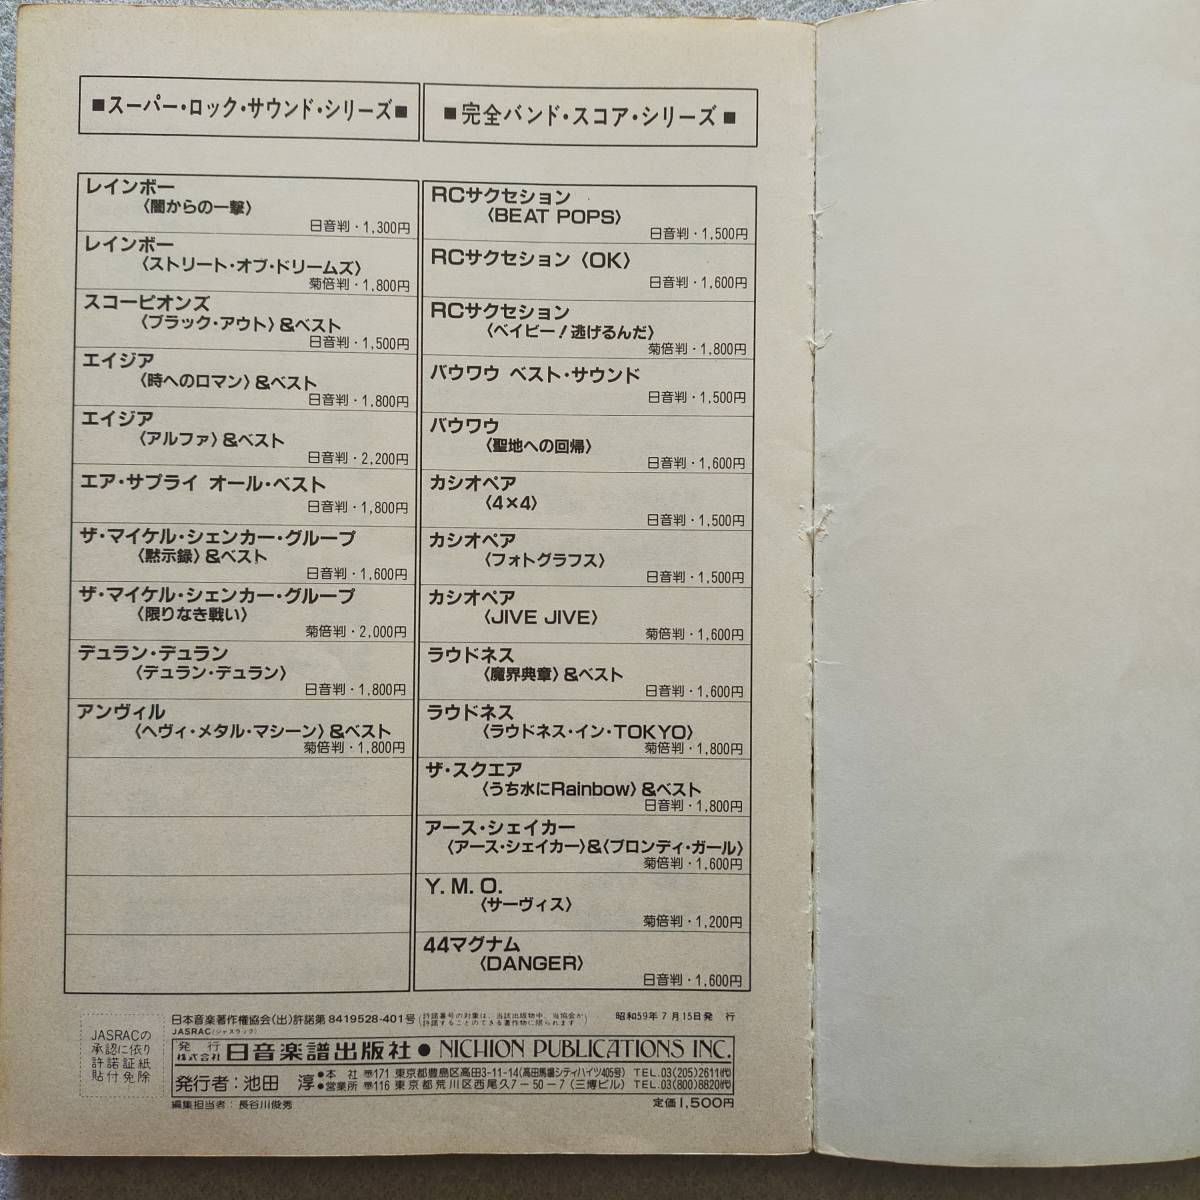 ■スーパー・ロック・サウンド・シリーズ■
レインボー
〈闇からの一撃〉
日音判・1,300円
レインボー
〈ストリート・オブ・ドリームズ〉
菊倍判・1,800円
スコーピオンズ
〈ブラック・アウト〉&ベスト
日音判・1,500円
エイジア
〈時へのロマン〉&ベスト
日音判・1,800円
エイジア
〈アルファ〉&ベスト
日音判・2,200円
エア・サプライ オール・ベスト
日音判・1,800円
ザ・マイケル・シェンカー・グループ
〈黙示録〉&ベスト
日音判・1,600円
ザ・マイケル・シェンカー・グループ
〈限りなき戦い〉
菊倍判・2,000円
デュラン・デュラン
〈デュラン・デュラン〉
日音判・1,800円
アンヴィル
〈ヘヴィ・メタル・マシーン〉&ベスト
菊倍判・1,800円
■完全バンド・スコア・シリーズ■
RCサクセション
〈BEAT POPS〉
日音判・1,500円
RCサクセション〈OK〉
日音判・1,600円
RCサクセション
〈ベイビー！逃げるんだ〉
菊倍判・1,800円
バウワウ ベスト・サウンド
日音判・1,500円
バウワウ
〈聖地への回帰〉
日音判・1,600円
カシオペア
〈4×4〉
日音判・1,500円
カシオペア
〈フォトグラフス〉
日音判・1,500円
カシオペア
〈JIVE JIVE〉
菊倍判・1,600円
ラウドネス
〈魔界典章〉&ベスト
日音判・1,600円
ラウドネス
〈ラウドネス・イン・TOKYO〉
菊倍判・1,800円
ザ・スクエア
〈うち水にRainbow〉&ベスト
日音判・1,800円
アース・シェイカー
〈アース・シェイカー〉&〈ブロンディ・ガール〉
菊倍判・1,600円
Y. M. O.
〈サーヴィス〉
菊倍判・1,200円
44マグナム
〈DANGER〉
日音判・1,600円
JASRACの
承認に依り
許諾証紙
貼付免除
日本音楽著作権協会(出)許諾第8419528-401号 (許諾番号の対象は、当該出版物中、当協会が許諾することのできる著作物に限られます) 昭和59年7月15日発 行
JASRAC(ジャスラック)
発行
株式会社 日音楽譜出版社 ● NICHION PUBLICATIONS INC.
発行者：池田 淳
●本 社 〒171 東京都豊島区高田3-11-14(高田馬場シティハイツ405号) TEL.03(205)2611(代)
●営業所 〒116 東京都荒川区西尾久7-50-7(三博ビル) TEL.03(800)8820(代)
編集担当者：長谷川俊秀
定価1,500円